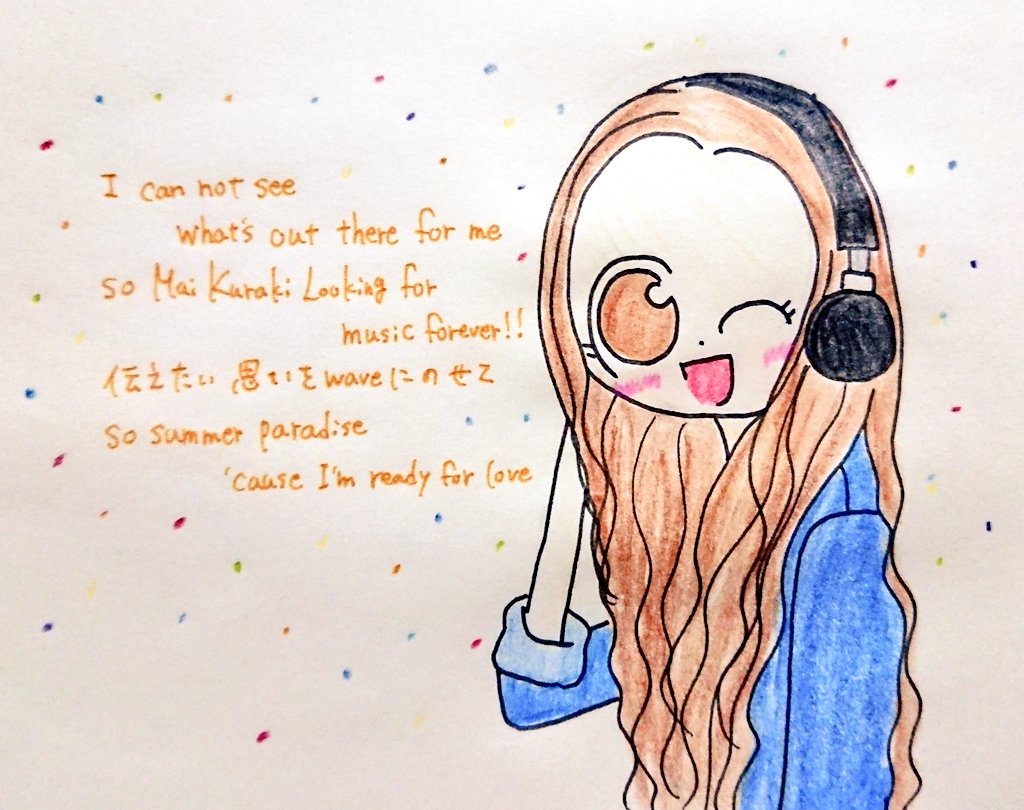 I can not see
what's out there for me
so Mai Kuraki Looking for
music forever!!
伝えたい 思いを waveにのせて
so summer paradise
'cause I'm ready for love